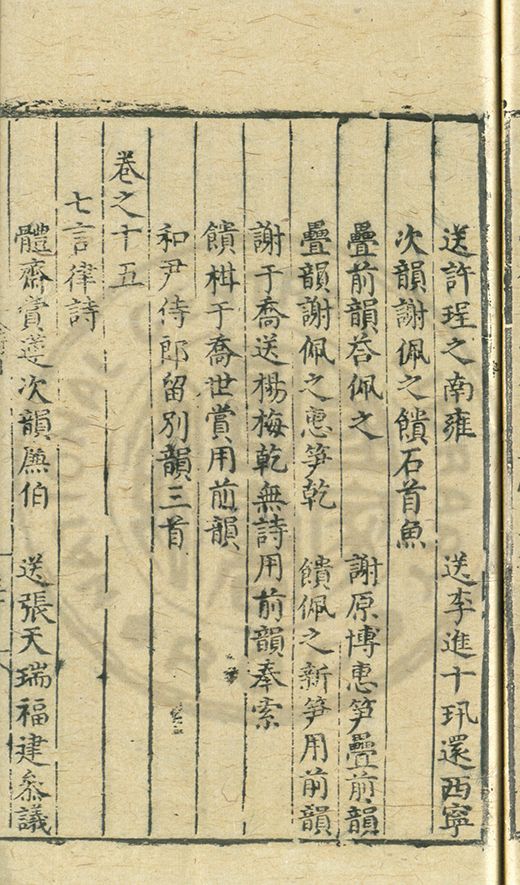 送許珵之南雍　送李進士玑還西寧
次韻謝佩之饋石首魚
疊前韻荅佩之　謝原博惠笋疊前韻
疊韻謝佩之惠笋乾　饋佩之新笋用前韻
謝于喬送楊梅乾無詩用前韻奉索
饋柑于喬世賞用前韻
和尹侍郎留別韻三首
卷之十五
七言律詩
體齋賞蓮次韻廉伯　送張天瑞福建叅議